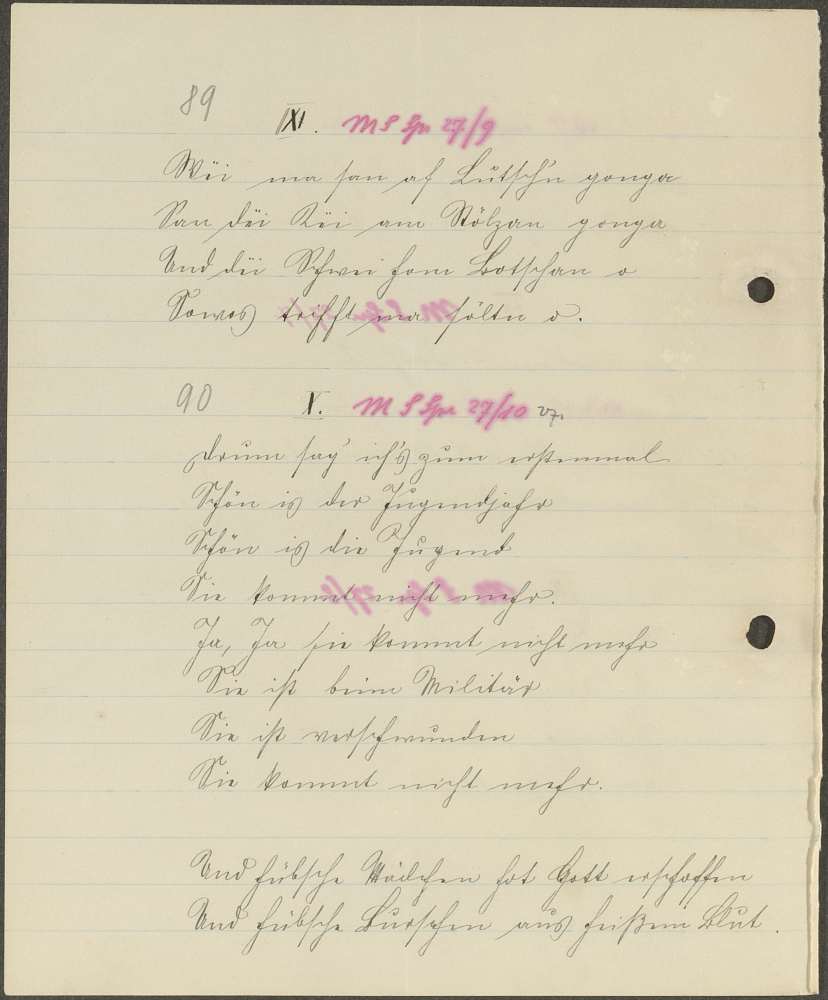 89
IX. M S Spr 27/9
Wëi ma san af Lutsch'n gonga
San dëi Këi am Stölzan gonga
Und dëi Schwei hom Botschan o
Sowos trifft ma söltn o.
90
X. M S Spr 27/10
Drum sag' ich's zum erstenmal
Schön is der Jugendjahr
Schön is die Jugend
Sie kommt nicht mehr.
Ja, Ja sie kommt nicht mehr
Sie ist beim Militär
Sie ist verschwunden
Sie kommt nicht mehr.
Und hübsche Mädchen hot Gott erschaffen
Und hübsche Burschen aus heißem Blut.